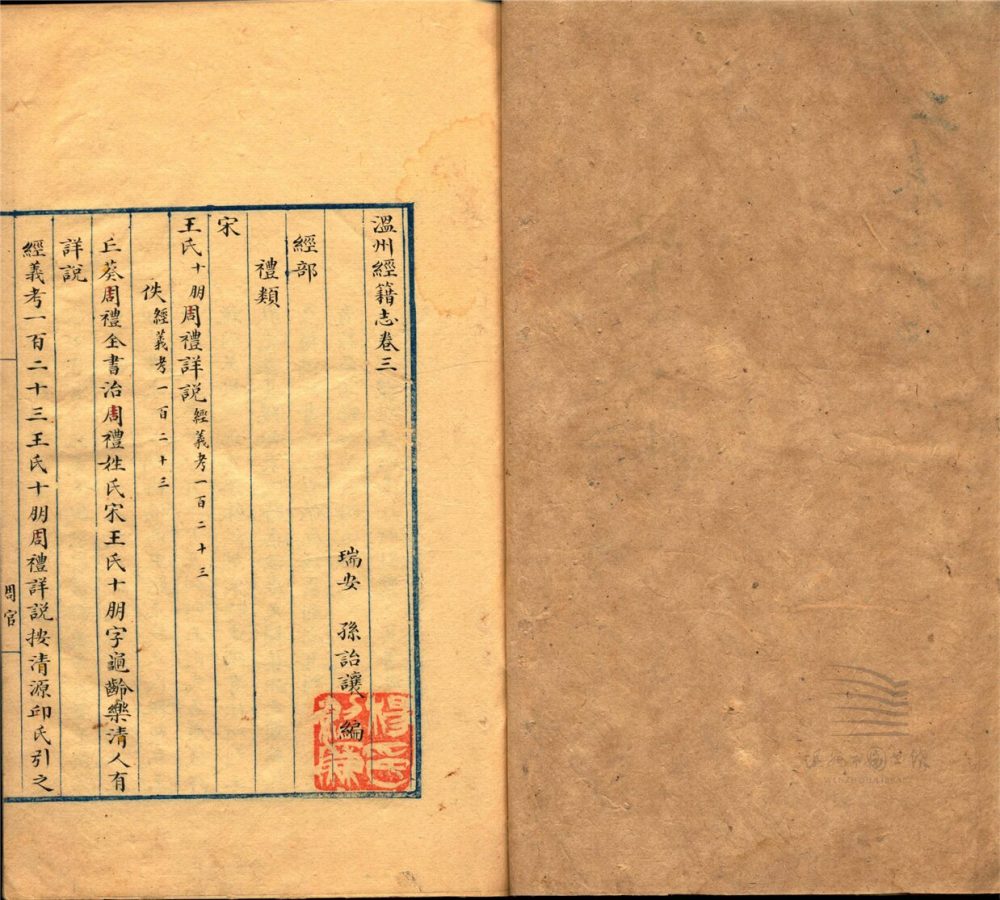 溫州經籍志卷三
瑞安 孫詒讓 編
經部
禮類
宋
王氏十朋周禮詳說經義考一百二十三
佚經義考一百二十三
丘葵周禮全書治周禮姓氏宋王氏十朋字龜齡樂清人有
詳說
經義考一百二十三王氏十朋周禮詳說按清源邱氏引之
周官